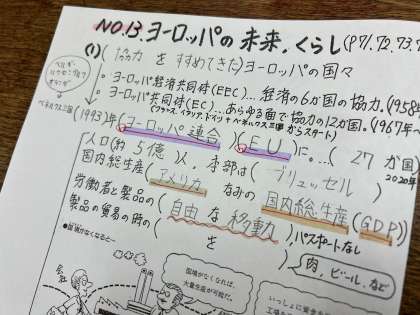 NO.13.ヨーロッパの未来,くらし
(P71.72.73.7
(1)(協力をすすめてきた)ヨーロッパの国々
ベルギー
ルクセンブルク
オランダ
ベネルクス三国
・ヨーロッパ経済共同体(EEC)…経済の6か国の協力。(1958
・ヨーロッパ共同体(EC)…あらゆる面で協力の12か国。(1967年~
(フランス、イタリア、ドイツ+ベネルクス三国からスタート)
(1993)年(ヨーロッパ連合)(EU)に。…(27か国
2020年
「人口(約5億)人、本部は(ブリュッセル
国内総生産(アメリカ)なみの(国内総生産(GDP))
労働者と製品の(自由な移動),パスポートなし
製品の貿易の時の()を
肉、ビール、など
●国境がなくなると―
会社
国境がなくなれば、
大量生産が可能だ。
いっしょに資金を
工場を